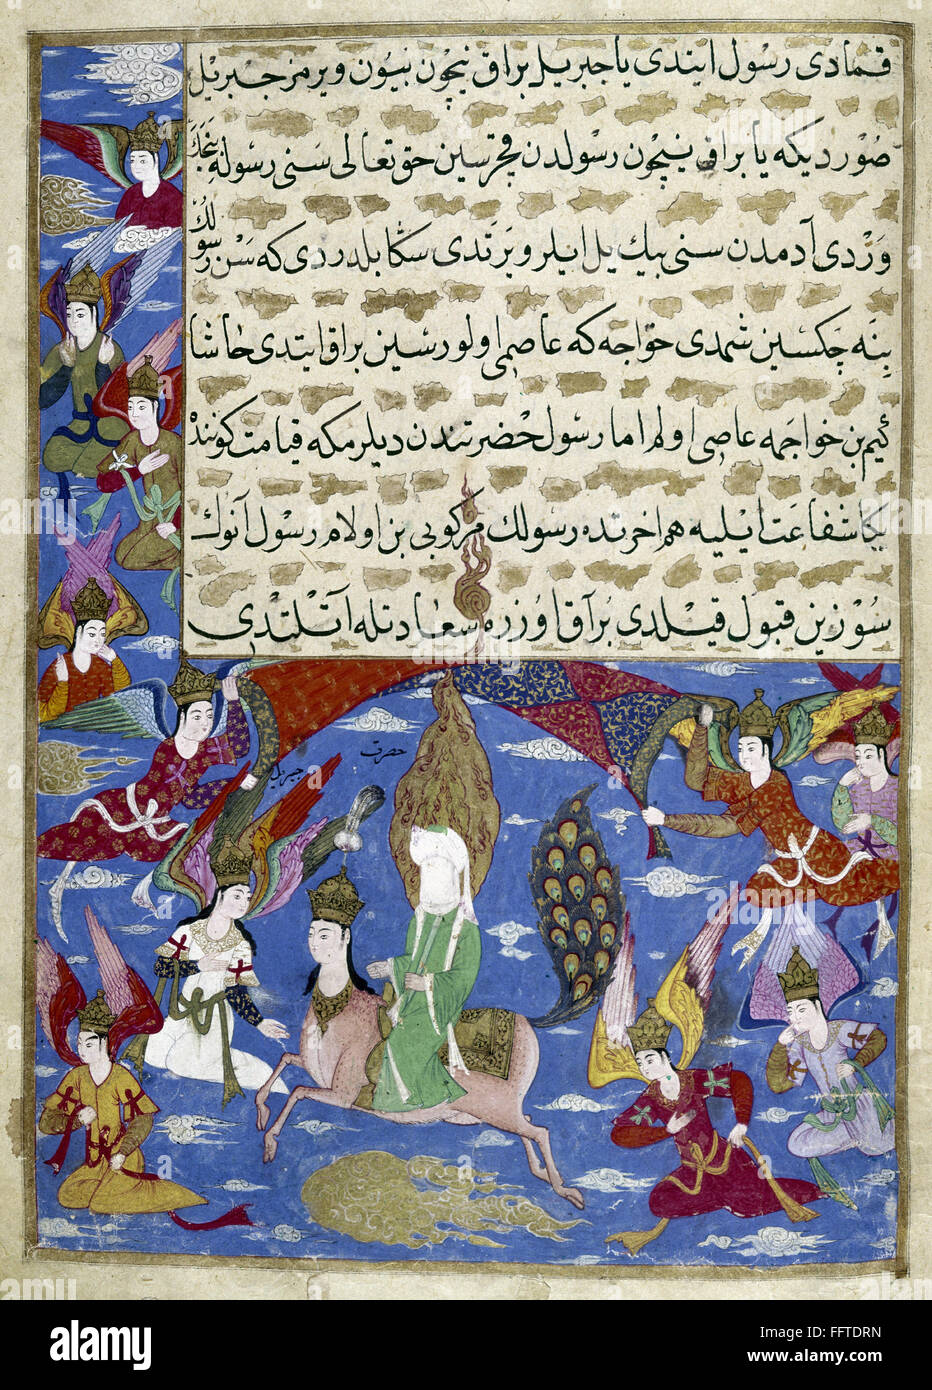 قمادى رسول ايتدى يا جبريل براق نيچون بيون ويرمز جبريل
صوردیکه یا براق نیچون رسولدن قچرسین حق تعالی سنی رسوله
وردی آدمدن سنی بیك یل ایلرو یرتدی سکا بلدردی که سن رسولك
بنه چکسین شمدی خواجه که عاصمی اولورسین براق ایتدی حاشا
کیم بن خواجمه عاصی اولم اما رسول حضرتندن دیلرمکه قیامت کوننده
بکا شفاعت ایلیه هم اخرتده رسولك مرکوبی بن اولام رسول آنوك
سوزین قبول قیلدی براق اوزره سعادتله آتلندی
حضرت
جبریل
alamy stock photo
FFTDRN
www.alamy.com